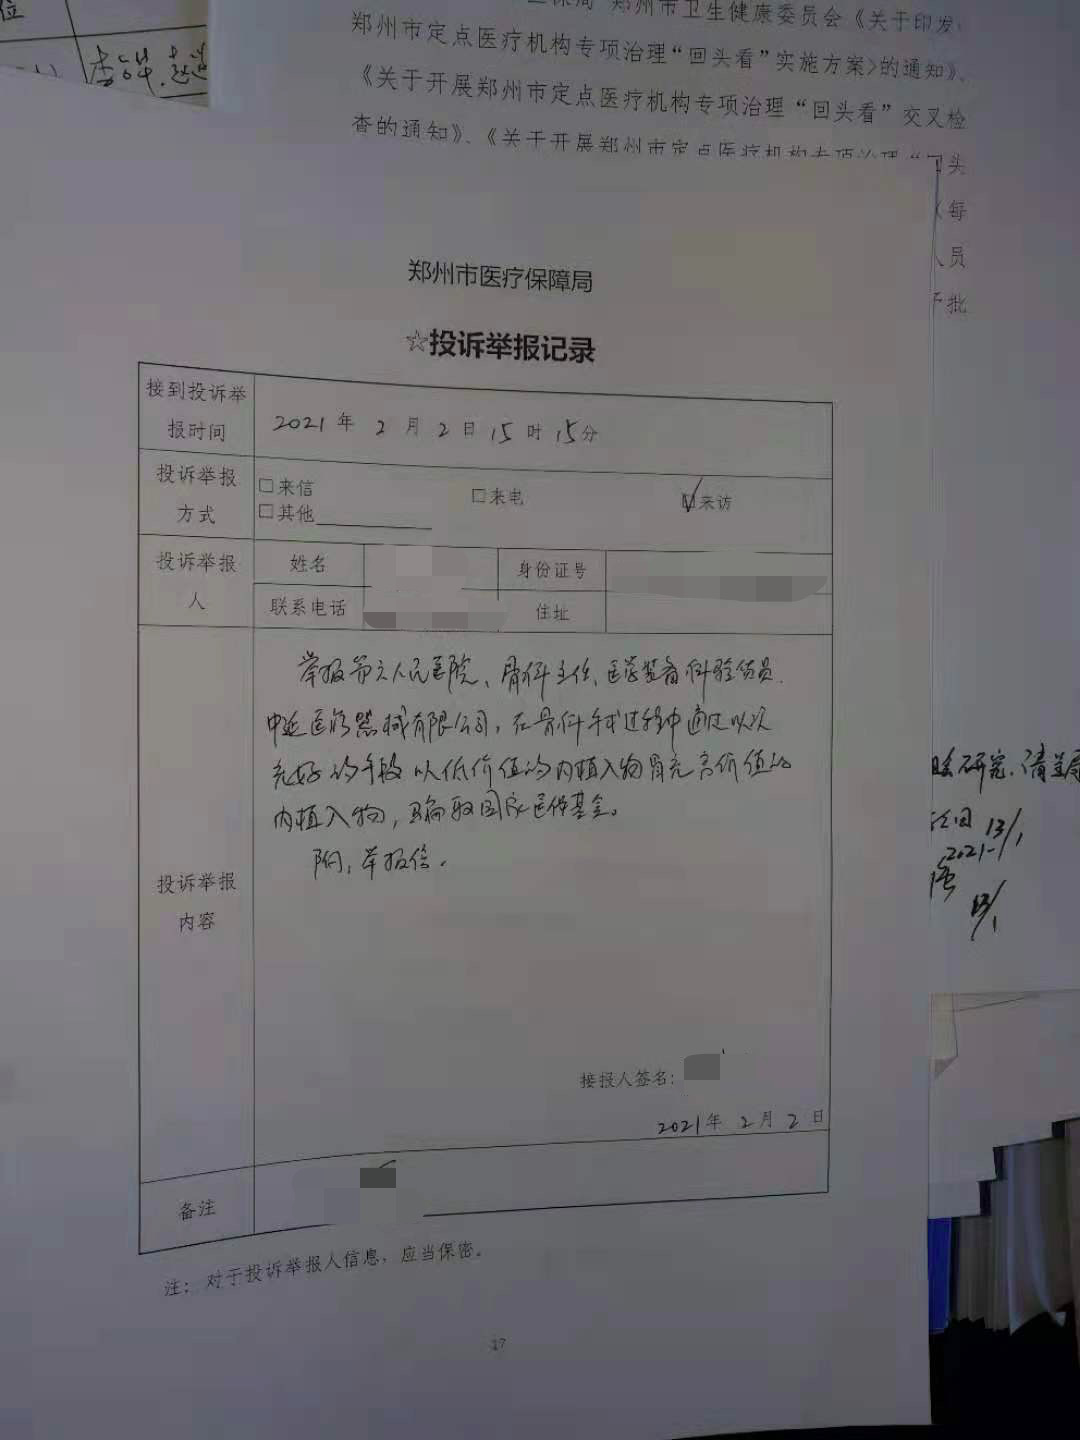 位
郑州市卫生健康委员会《关于印发
郑州市定点医疗机构专项治理“回头看”实施方案>的通知》、
《关于开展郑州市定点医疗机构专项治理“回头看”交叉检
查的通知》、《关于开展郑州市定点医疗机构专项治理“回头
每
人员
批
郑州市医疗保障局
☆投诉举报记录
接到投诉举报时间
2021年2月2日15时15分
投诉举报方式
□来信 □来电 ☑来访
□其他
投诉举报人
姓名 身份证号
联系电话 住址
投诉举报内容
举报第六人民医院、骨科主任、医学装备科验货员、
中延医疗器械有限公司,在骨科手术过程中通过以次
充好的手段以低价值的内植入物冒充高价值的
内植入物,骗取国家医保基金。
附:举报信。
接报人签名:
2021年2月2日
备注
注:对于投诉举报人信息,应当保密。
17
研究.请
13/1
2021-
13/1